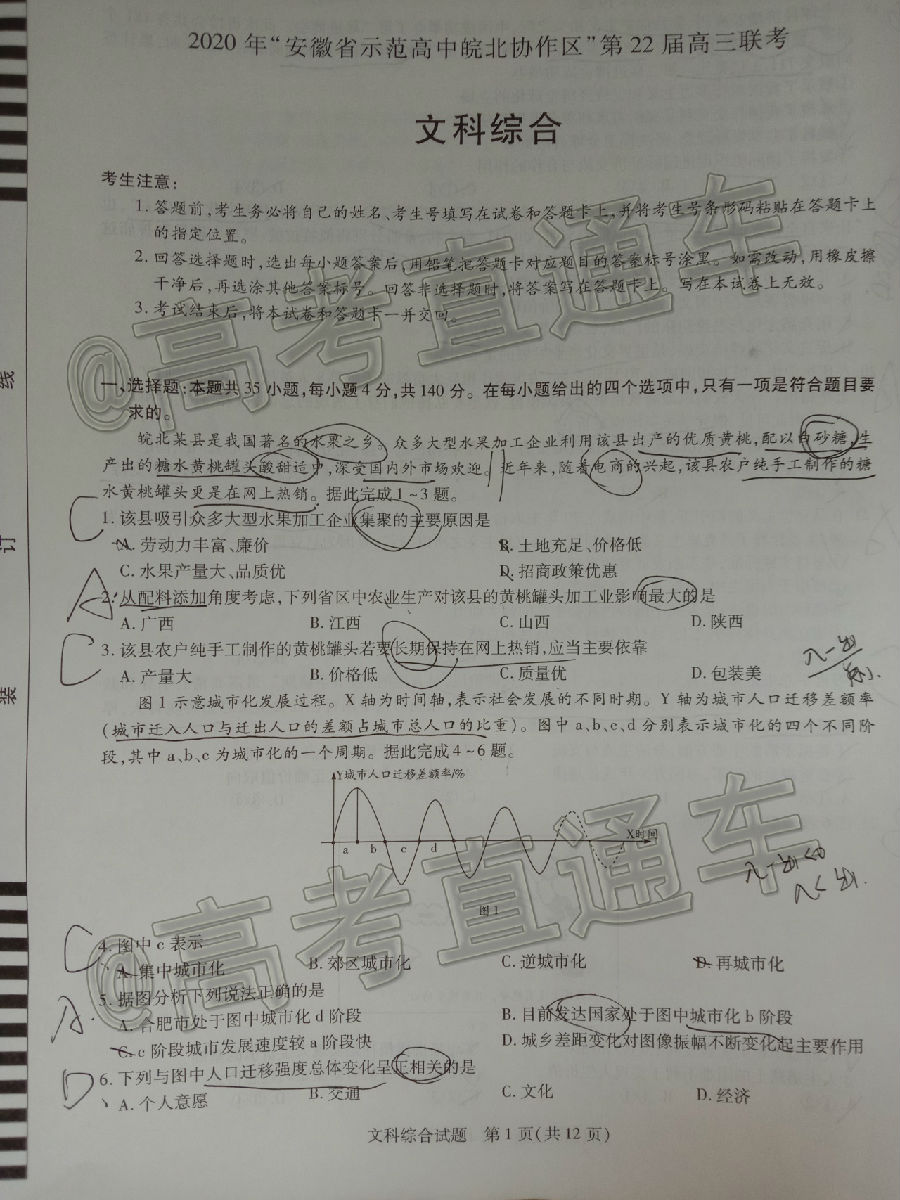 2020年“安徽省示范高中皖北协作区”第22届高三联考
文科综合
考生注意：
1. 答题前，考生务必将自己的姓名、考生号填写在试卷和答题卡上，并将考生号条形码粘贴在答题卡上
的指定位置。
2. 回答选择题时，选出每小题答案后，用铅笔把答题卡对应题目的答案标号涂黑。如需改动，用橡皮擦
干净后，再选涂其他答案标号。回答非选择题时，将答案写在答题卡上。写在本试卷上无效。
3. 考试结束后，将本试卷和答题卡一并交回。
@高考直通车
一、选择题：本题共35小题，每小题4分，共140分。在每小题给出的四个选项中，只有一项是符合题目要
求的。
皖北某县是我国著名的水果之乡。众多大型水果加工企业利用该县出产的优质黄桃，配以白砂糖，生
产出的糖水黄桃罐头酸甜适中，深受国内外市场欢迎。近年来，随着电商的兴起，该县农户纯手工制作的糖
水黄桃罐头更是在网上热销。据此完成1~3题。
C
1. 该县吸引众多大型水果加工企业集聚的主要原因是
A. 劳动力丰富、廉价 B. 土地充足、价格低
C. 水果产量大、品质优 D. 招商政策优惠
A
2. 从配料添加角度考虑，下列省区中农业生产对该县的黄桃罐头加工业影响最大的是
A. 广西 B. 江西 C. 山西 D. 陕西
C
3. 该县农户纯手工制作的黄桃罐头若要长期保持在网上热销，应当主要依靠
A. 产量大 B. 价格低 C. 质量优 D. 包装美
入-出
图1示意城市化发展过程。X轴为时间轴，表示社会发展的不同时期。Y轴为城市人口迁移差额率
（城市迁入人口与迁出人口的差额占城市总人口的比重）。图中a、b、c、d分别表示城市化的四个不同阶
段，其中a、b、c为城市化的一个周期。据此完成4~6题。
Y城市人口迁移差额率/%
X时间
a b c d
图1
入-出<0
入<出.
@高考直通车
C
4. 图中c表示
A. 集中城市化 B. 郊区城市化 C. 逆城市化 D. 再城市化
A.
5. 据图分析下列说法正确的是
A. 合肥市处于图中城市化d阶段 B. 目前发达国家处于图中城市化b阶段
C. c阶段城市发展速度较a阶段快 D. 城乡差距变化对图像振幅不断变化起主要作用
D
6. 下列与图中人口迁移强度总体变化呈正相关的是
A. 个人意愿 B. 交通 C. 文化 D. 经济
文科综合试题 第1页(共12页)
线
订
装